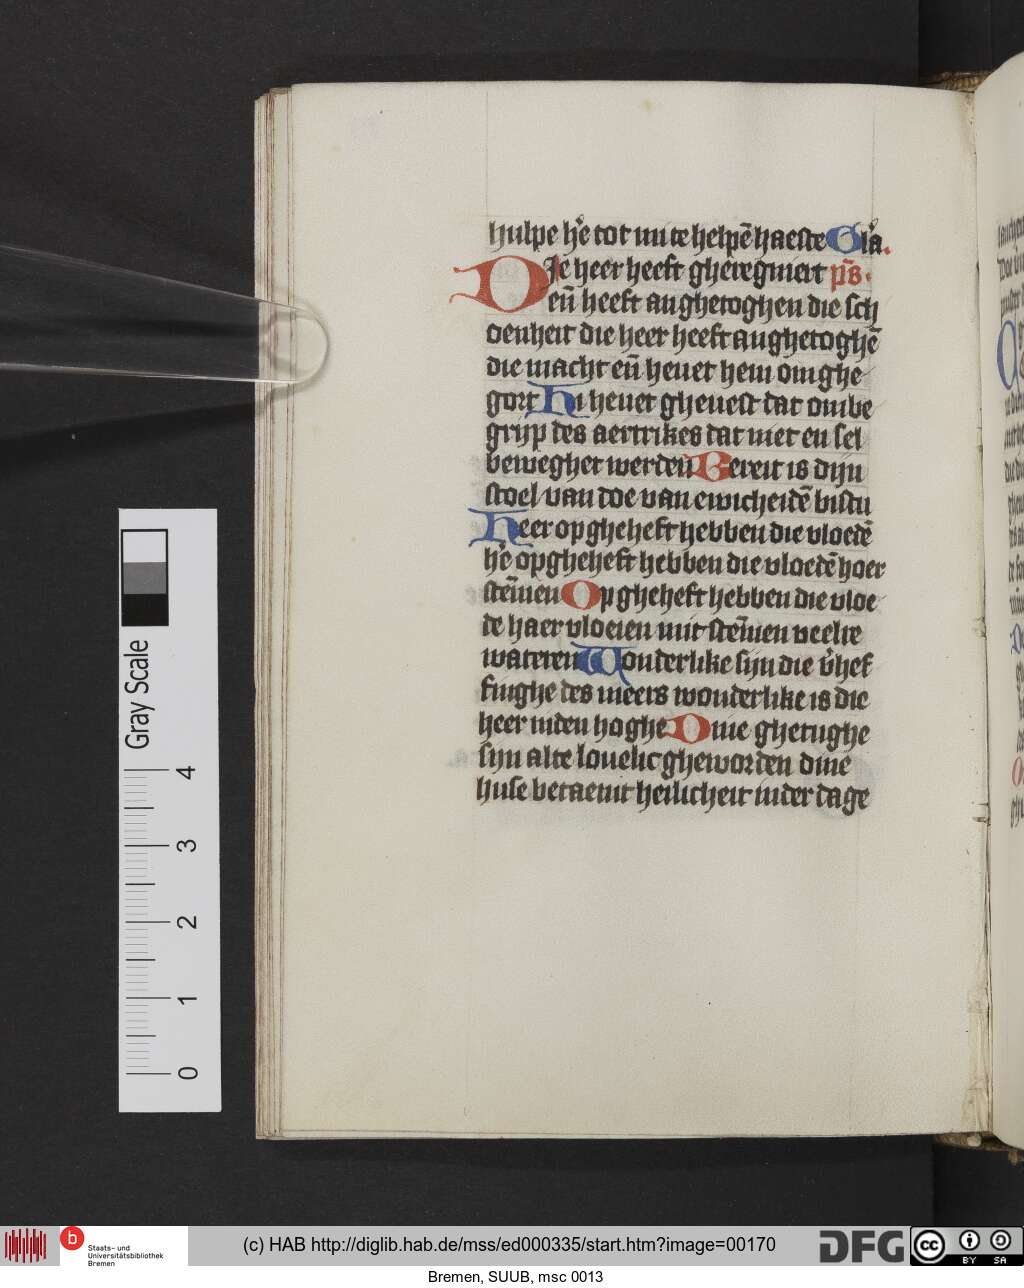 hulpe h̄e tot mi te helpē haeste Gl'a.
Die heer heeft gheregniert ps̄.
eñ heeft an ghetoghen die sch
oenheit die heer heeft an ghetoghē
die macht eñ heuet hem om ghe
gort Hi heuet gheuest dat ombe
grijp des aertrikes dat niet en sel
beweghet werden Bereit is dijn
stoel van doe van ewicheidē bistu
Heer op gheheft hebben die vloedē
h̄e op gheheft hebben die vloedē hoer
stēmen Op gheheft hebben die vloe
de haer vloeien mit stēmen veelre
wateren Wonderlike sijn die v'hef
finghe des meers wonderlike is die
heer inden hoghe Dine ghetughe
sijn alte louelic gheworden dine
huse betaemt heilicheit inder dage
Gray Scale
4
3
2
1
0
b Staats- und
Universitätsbibliothek
Bremen
(c) HAB http://diglib.hab.de/mss/ed000335/start.htm?image=00170
DFG
cc BY SA
Bremen, SUUB, msc 0013